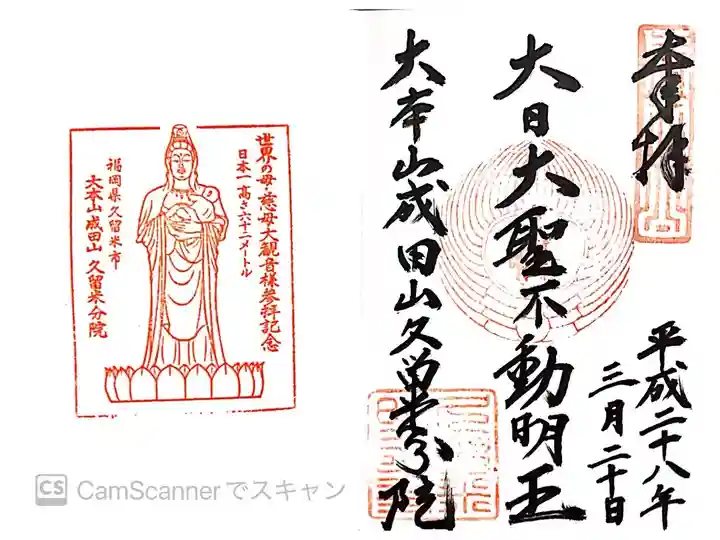 奉拝
大日大聖不動明王
大本山成田山久留米分院
平成二十八年
三月二十日
世界の母・慈母大観音様参拝記念
日本一高さ六十二メートル
福岡県久留米市
大本山成田山久留米分院
CS CamScannerでスキャン